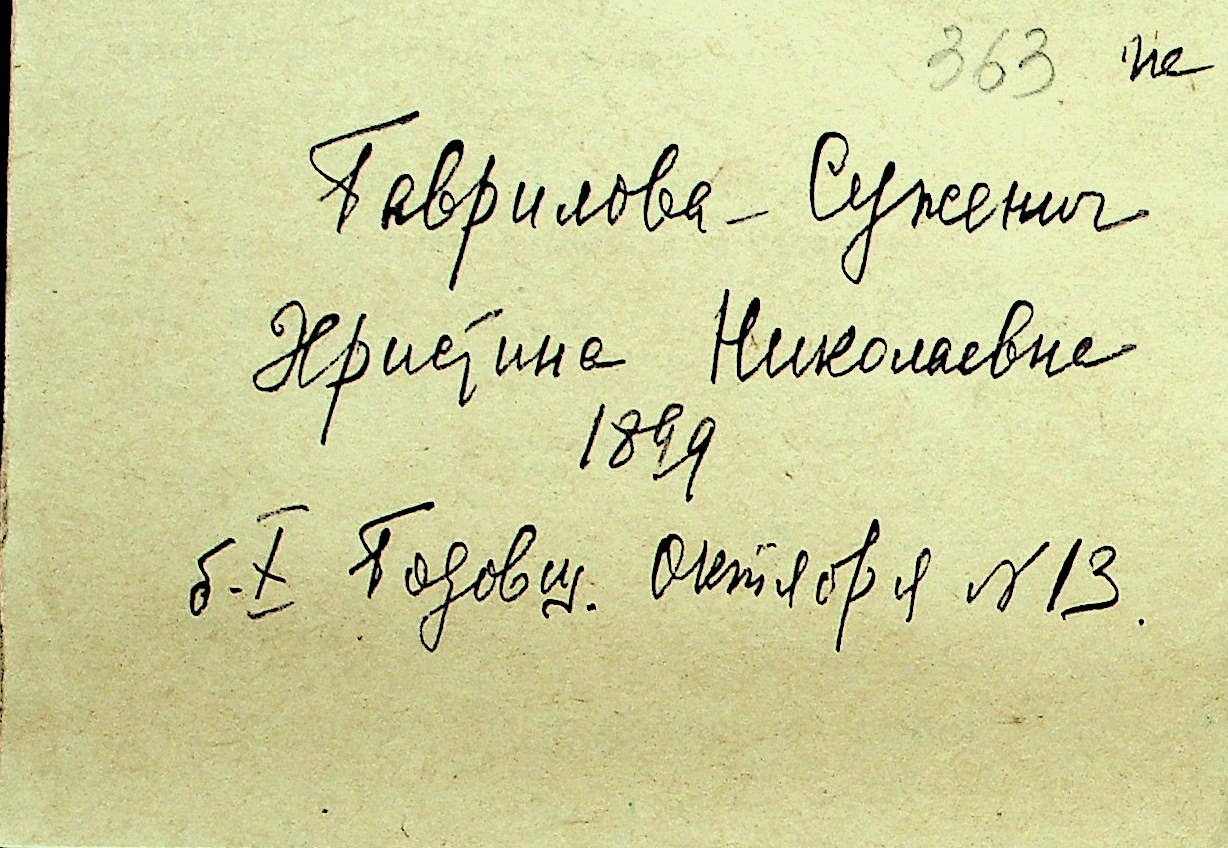 363 не
Гаврилова - Суженич
Христина Николаевна
1899
б-X Годовщ. Октября №13.